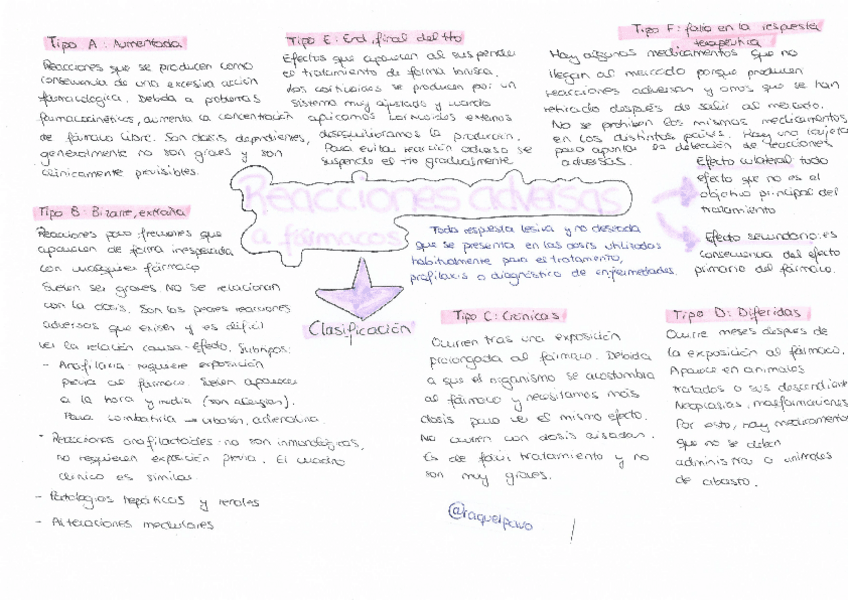 Reacciones adversas
a fármacos
Toda respuesta lesiva y no deseada
que se presenta en las dosis utilizadas
habitualmente para el tratamiento,
profilaxis o diagnóstico de enfermedades.
Efecto colateral: todo
efecto que no es el
objetivo principal del
tratamiento
Efecto secundario: es
consecuencia del efecto
primario del fármaco.
Clasificación
Tipo A: Aumentada
Reacciones que se producen como
consecuencia de una excesiva acción
farmacológica. Debida a problemas
farmacocinéticos, aumenta la concentración
de fármaco libre. Son dosis dependientes,
generalmente no son graves y son
clínicamente previsibles.
Tipo B: Bizarre, extraña
Reacciones poco frecuentes que
aparecen de forma inesperada
con cualquier fármaco
Suelen ser graves no se relacionan
con la dosis. Son las peores reacciones
adversas que existen y es difícil
ver la relación causa-efecto. Subtipos:
- Anafilaxia: requiere exposición
previa al fármaco. Suelen aparecer
a la hora y media (son alergias).
Para combatirla → urbasón, adrenalina.
- Reacciones anafilactoides: no son inmunológicas,
no requieren exposición previa. El cuadro
clínico es similar.
- Patologías hepáticas y renales
- Alteraciones medulares
Tipo C: Crónicas
Ocurren tras una exposición
prolongada al fármaco. Debida
a que el organismo se acostumbra
al fármaco y necesitamos más
dosis para ver el mismo efecto.
No ocurren con dosis aisladas.
Es de fácil tratamiento y no
son muy graves.
Tipo D: Diferidas
Ocurre meses después de
la exposición al fármaco.
Aparece en animales
tratados o sus descendient
Neoplasias, malformaciones
Por esto, hay medicamento
que no se deben
administrar a animales
de abasto.
Tipo E: End, final del tto
Efectos que aparecen al suspender
el tratamiento de forma brusca.
Los corticoides se producen por un
sistema muy ajustado y cuando
aplicamos corticoides externos
desequilibramos la producción.
Para evitar reacción adversa se
suspende el tto gradualmente
Tipo F: fallo en la respuesta
terapéutica
Hay algunos medicamentos que no
llegan al mercado porque producen
reacciones adversas y otros que se han
retirado después de salir al mercado.
No se prohíben los mismos medicamentos
en los distintos países. Hay una tarjeta
para apuntar la detección de reacciones
adversas.
@raquelpavo